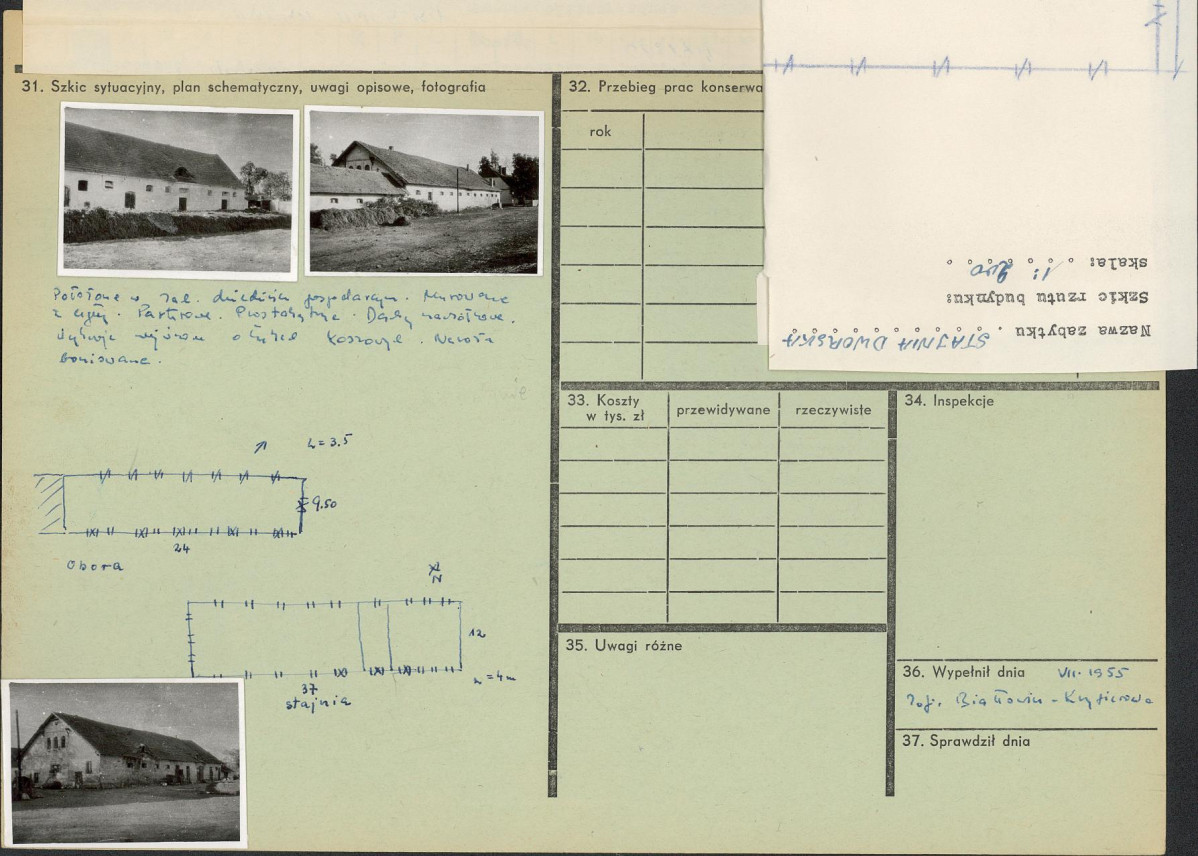 31. Szkic sytuacyjny, plan schematyczny, uwagi opisowe, fotografia
Położone w zał. dziedzińca gospodarczym. Murowane
z cegły. Parterowe. Prostokątne. Dachy naczółkowe.
otworów Naroża
boniowane.
h=3.5
9.50
24
Obora
N
12
h=4m
37
stajnia
32. Przebieg prac konserwa
rok
Nazwa zabytku . STAJNIA DWORSKA
Szkic rzutu budynku:
skala: 1:200
33. Koszty
w tys. zł
przewidywane
rzeczywiste
34. Inspekcje
35. Uwagi różne
36. Wypełnił dnia VII. 1955
37. Sprawdził dnia